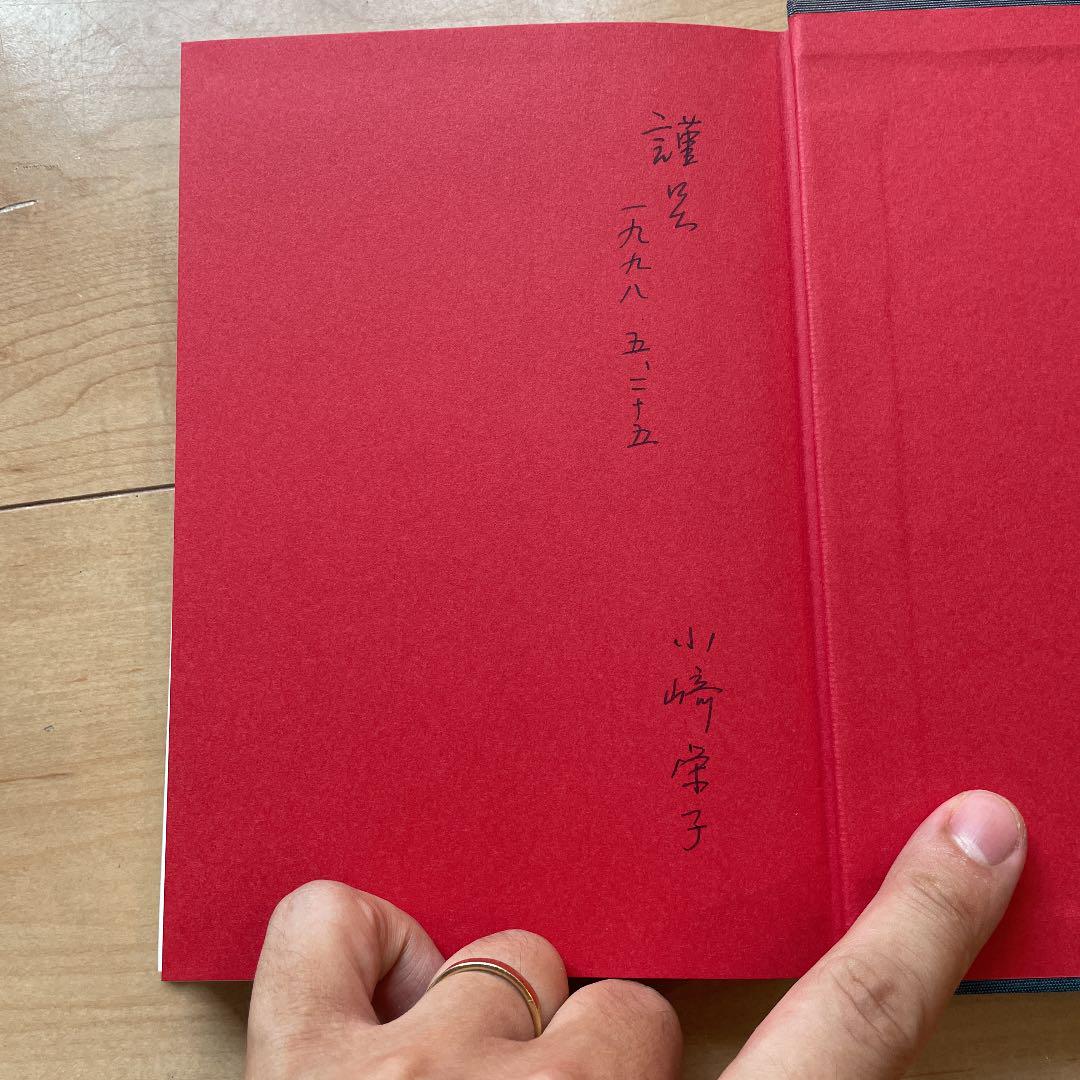 謹呈
一九九八 五、二十五
小崎栄子